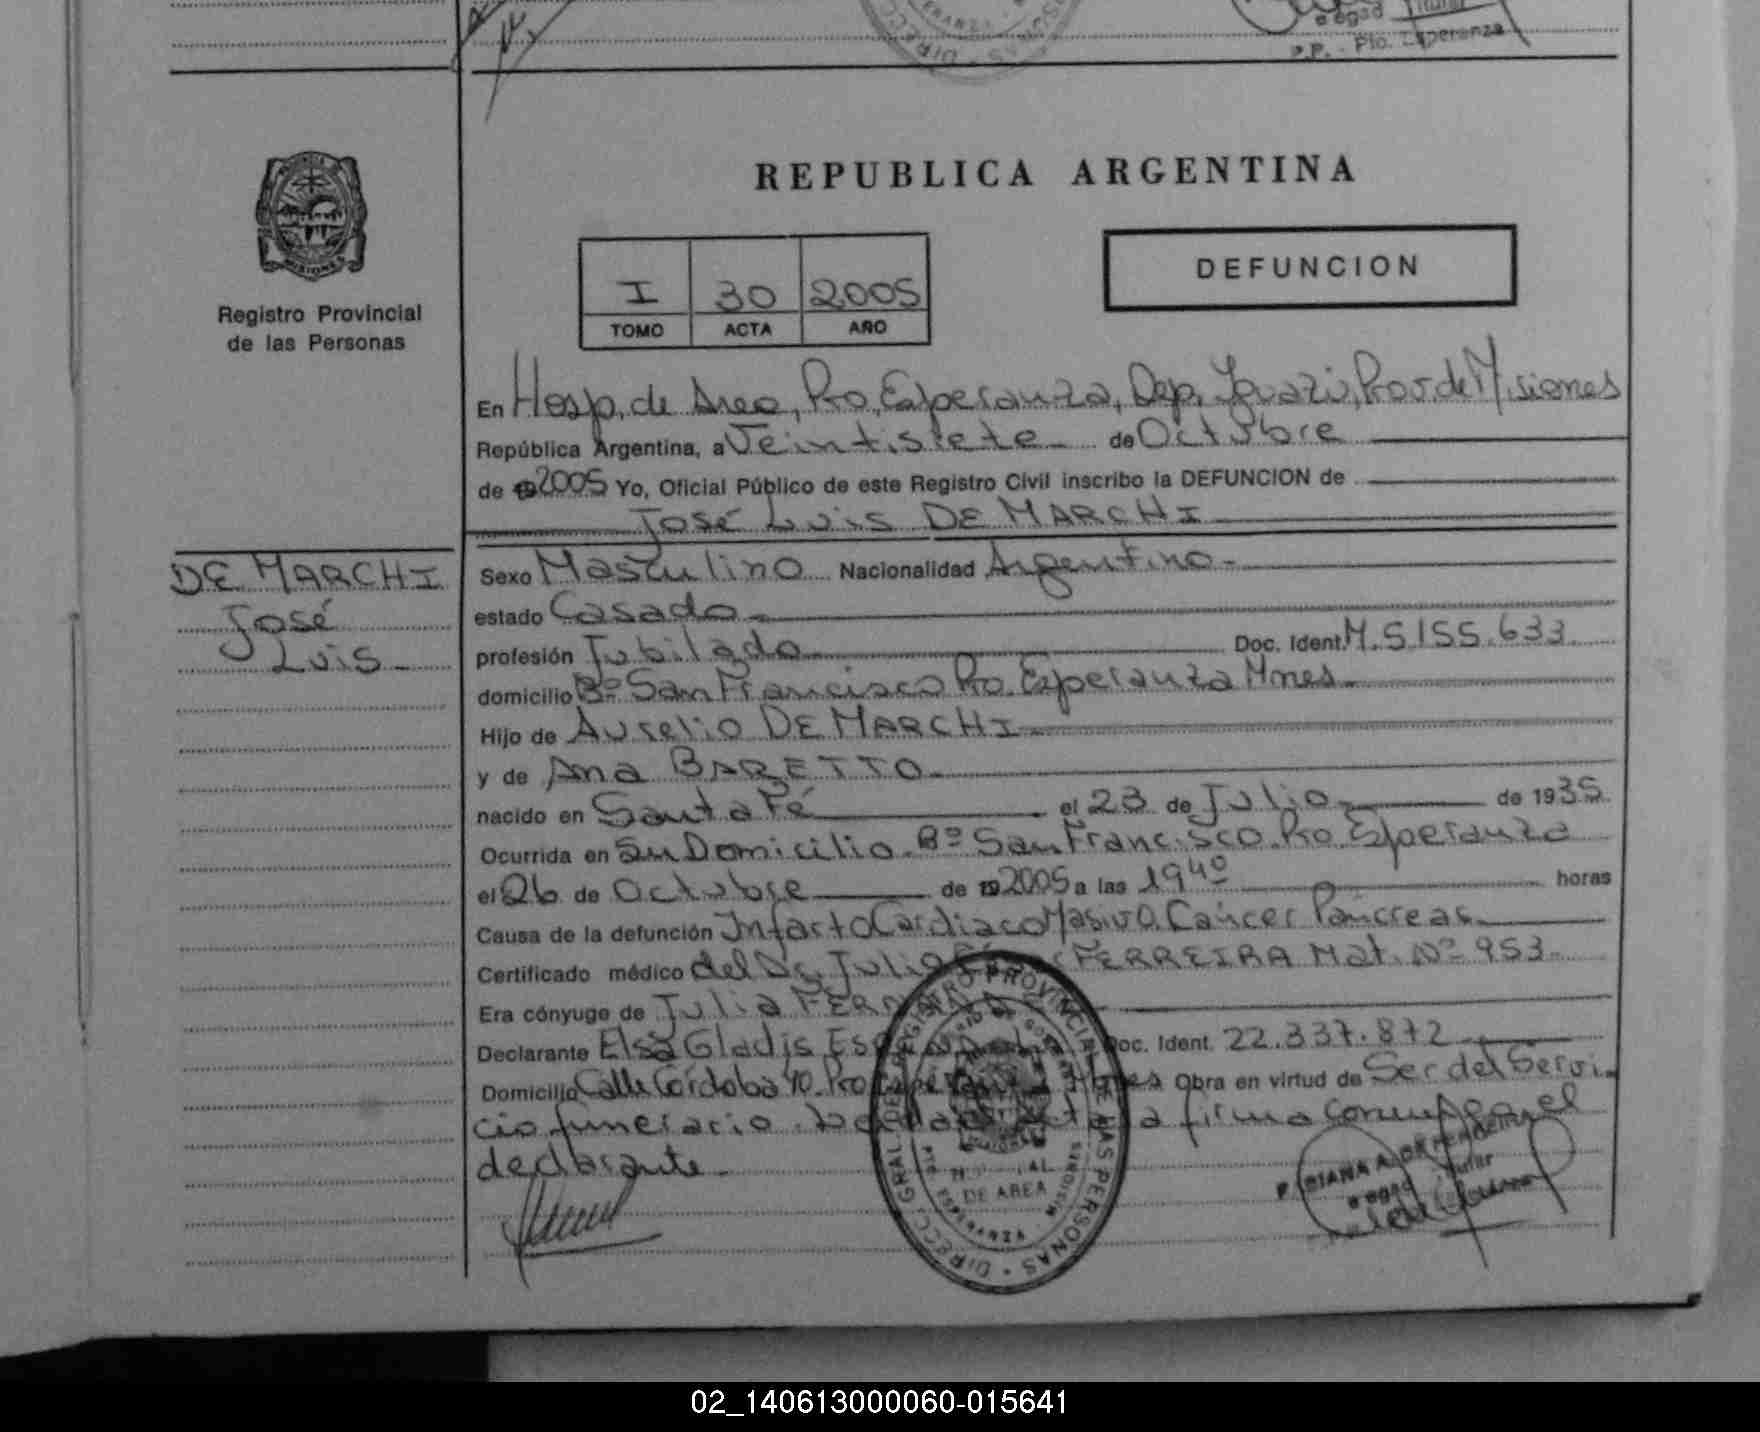 P.P. - Pto. Esperanza
REPUBLICA ARGENTINA
MISIONES
Registro Provincial
de las Personas
I 30 2005
TOMO ACTA AÑO
DEFUNCION
En Hosp. de Area, Pto. Esperanza, Dep. Iguazú, Prov. de Misiones
República Argentina, a Veintisiete de Octubre
de 2005 Yo, Oficial Público de este Registro Civil inscribo la DEFUNCION de
José Luis DE MARCHI
DE MARCHI
José
Luis
Sexo Masculino Nacionalidad Argentino
estado Casado
profesión Jubilado Doc. Ident. M.5.155.633
domicilio Bº San Francisco Pto. Esperanza Mnes
Hijo de Aurelio DE MARCHI
y de Ana BARETTO
nacido en Santa Fé el 23 de Julio de 1935
Ocurrida en Su Domicilio. Bº San Francisco. Pto. Esperanza
el 26 de Octubre de 2005 a las 19⁴⁰ horas
Causa de la defunción Infarto Cardiaco Masivo. Cáncer Páncreas
Certificado médico del Dr. Julio FERREIRA Mat. Nº 953
Era cónyuge de Julia
Declarante Elsa Gladis Doc. Ident. 22.337.872
Domicilio Calle Córdoba 40. Pto. Esperanza Mnes Obra en virtud de Ser del Servi-
cio funerario. firma conmigo el
declarante
DIRECC. GRAL. DEL REGISTRO PROVINCIAL DE LAS PERSONAS
DE AREA
02_140613000060-015641